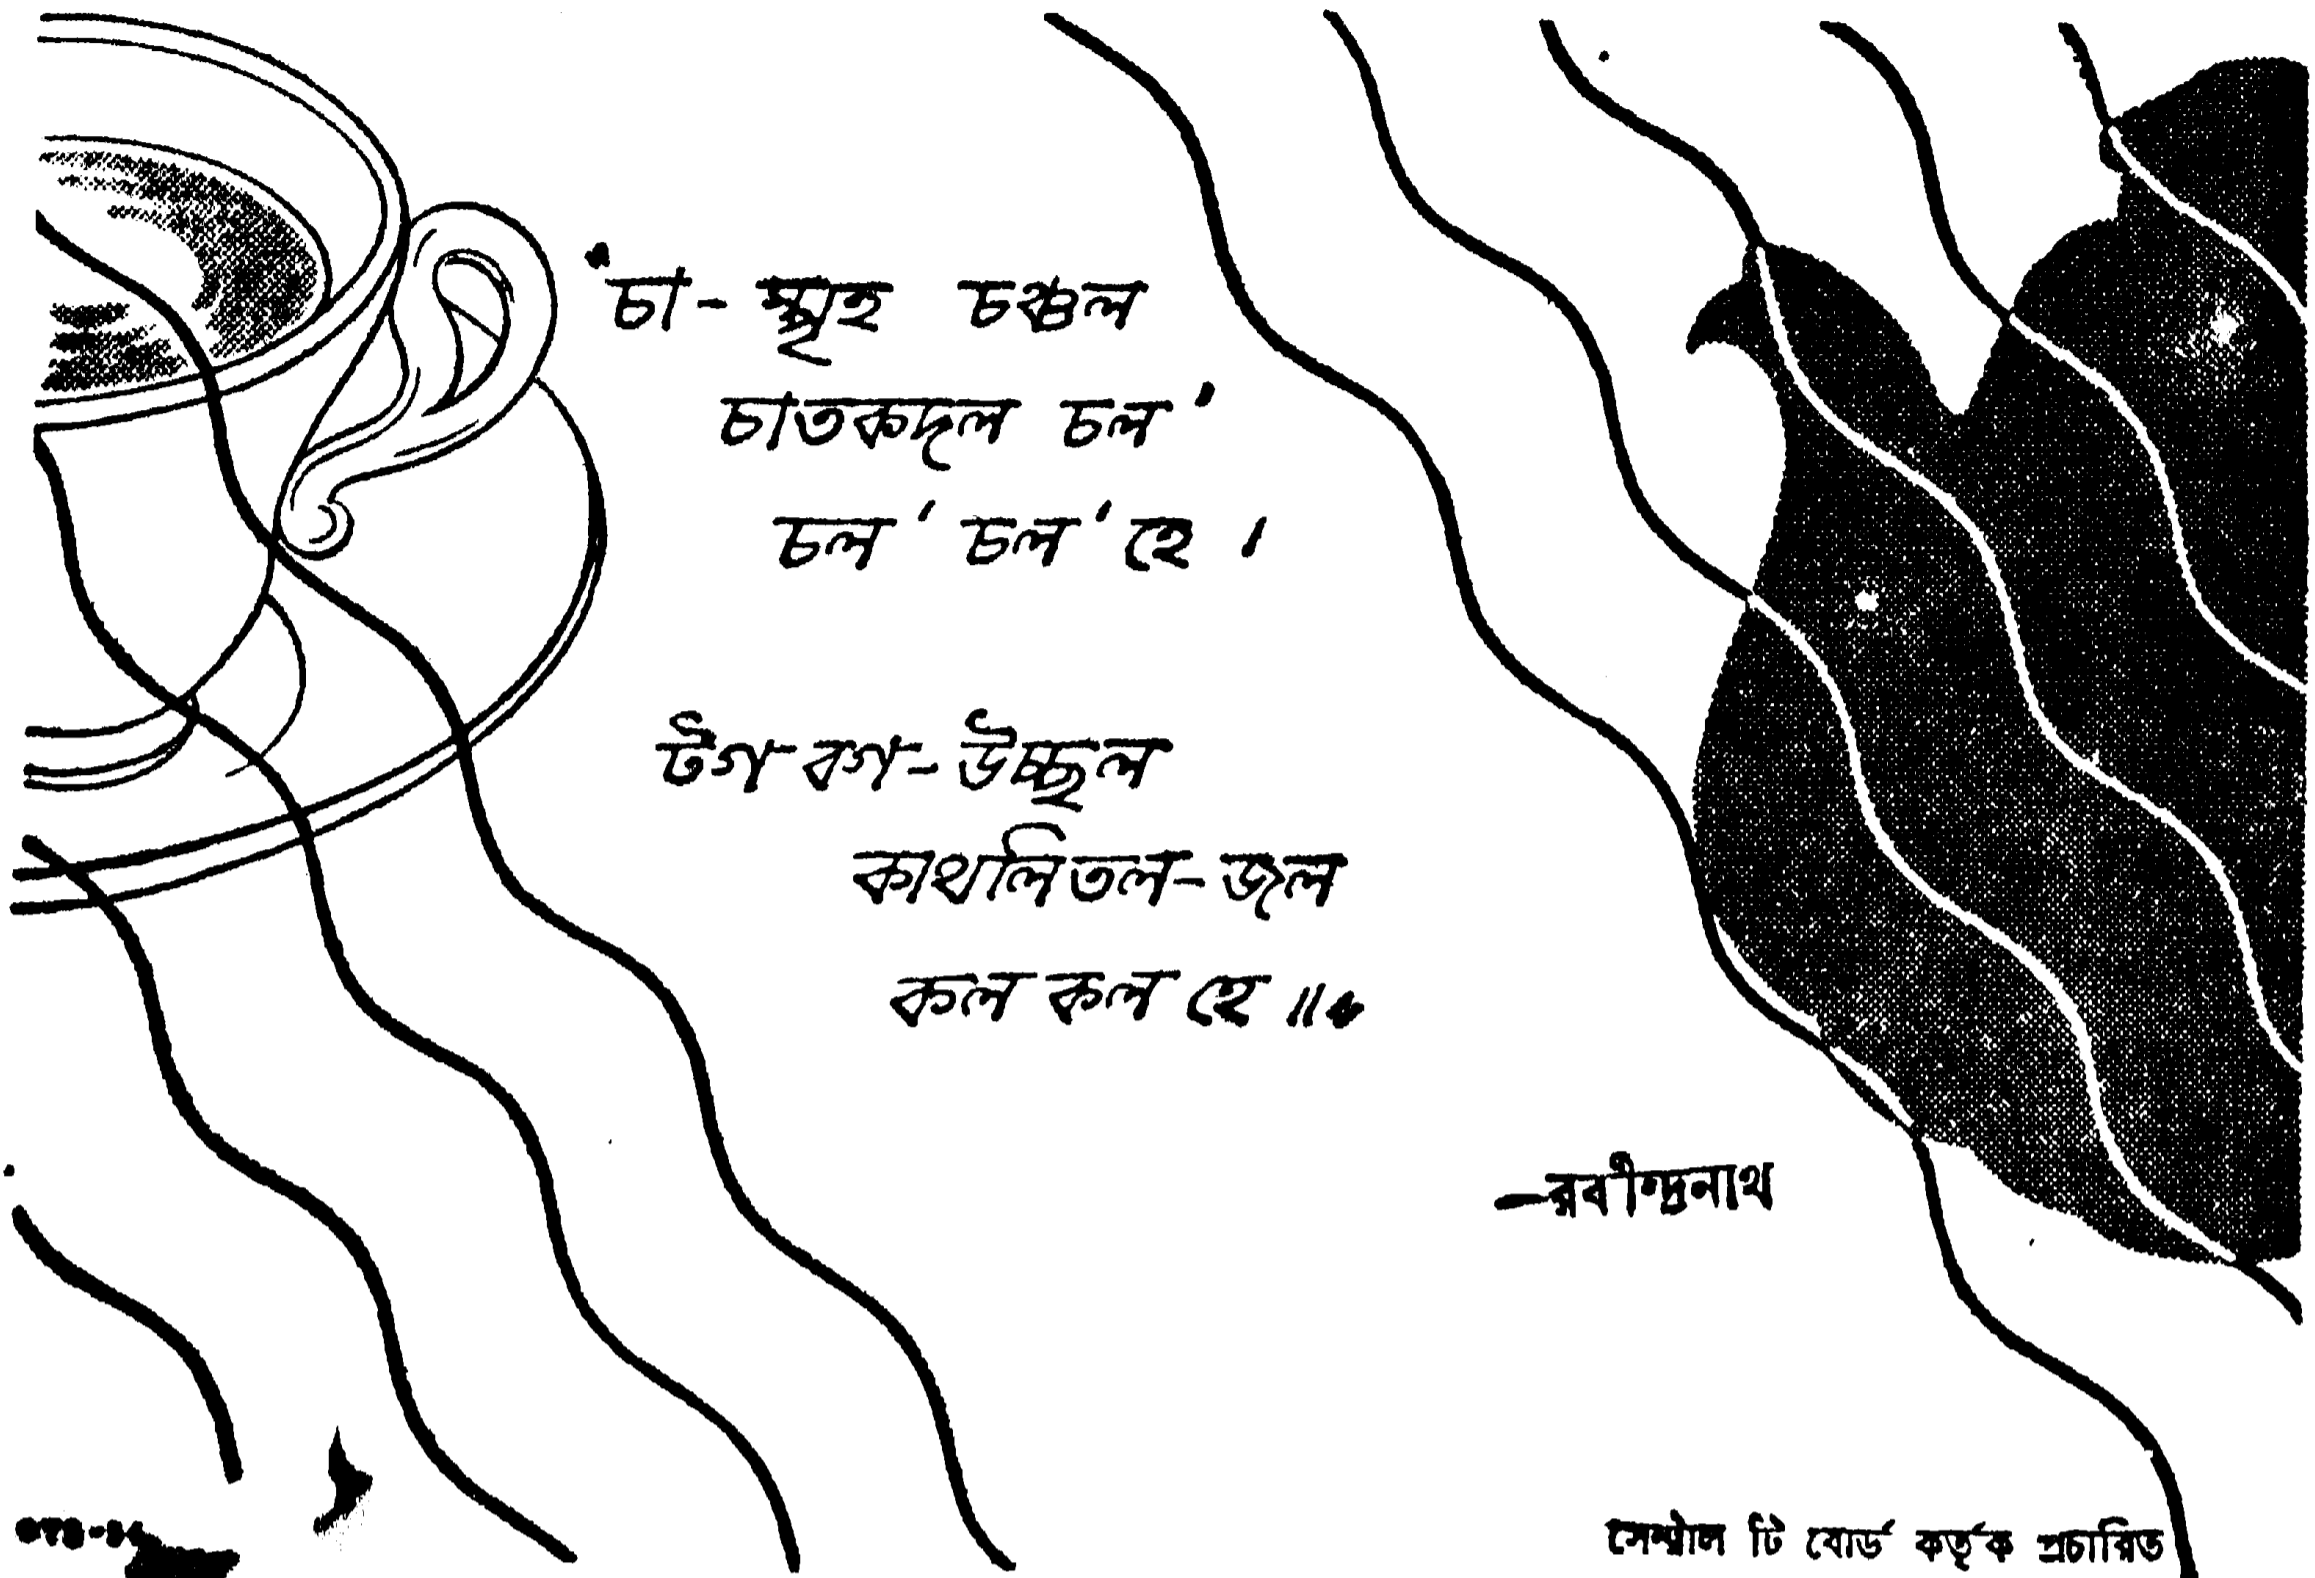 "চা-স্পৃহ চঞ্চল
চাতকদল চল'
চল' চল' হে।
টগবগ-উচ্ছল
কাথলিতল-জল
কল কল হে॥"
—রবীন্দ্রনাথ
সেন্ট্রাল টি বোর্ড কর্তৃক প্রচারিত